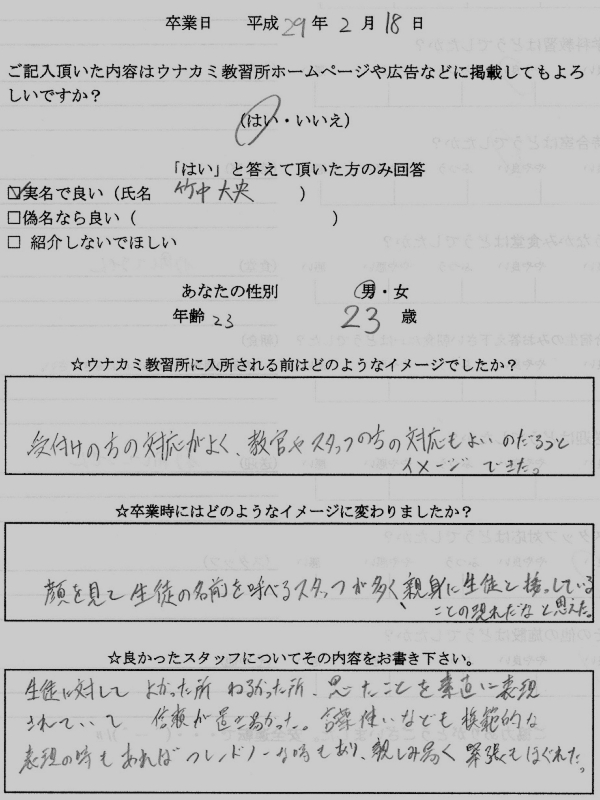 卒業日 平成29年2月18日
ご記入頂いた内容はウナカミ教習所ホームページや広告などに掲載してもよろ
しいですか?
(はい・いいえ)
「はい」と答えて頂いた方のみ回答
☑実名で良い(氏名 竹中大央 )
□偽名なら良い( )
□ 紹介しないでほしい
あなたの性別 男・女
年齢 23 23 歳
☆ウナカミ教習所に入所される前はどのようなイメージでしたか?
受付けの方の対応がよく、教官やスタッフの方の対応もよいのだろうと
イメージできた。
☆卒業時にはどのようなイメージに変わりましたか?
顔を見て生徒の名前を呼べるスタッフが多く、親身に生徒と接っしている
ことの現れだなと思えた。
☆良かったスタッフについてその内容をお書き下さい。
生徒に対してよかった所わるかった所、思たことを素直に表現
されていて信頼が置き易かった。言葉使いなども模範的な
表現の時もあればフレンドリーな時もあり、親しみ易く緊張もほぐれた。